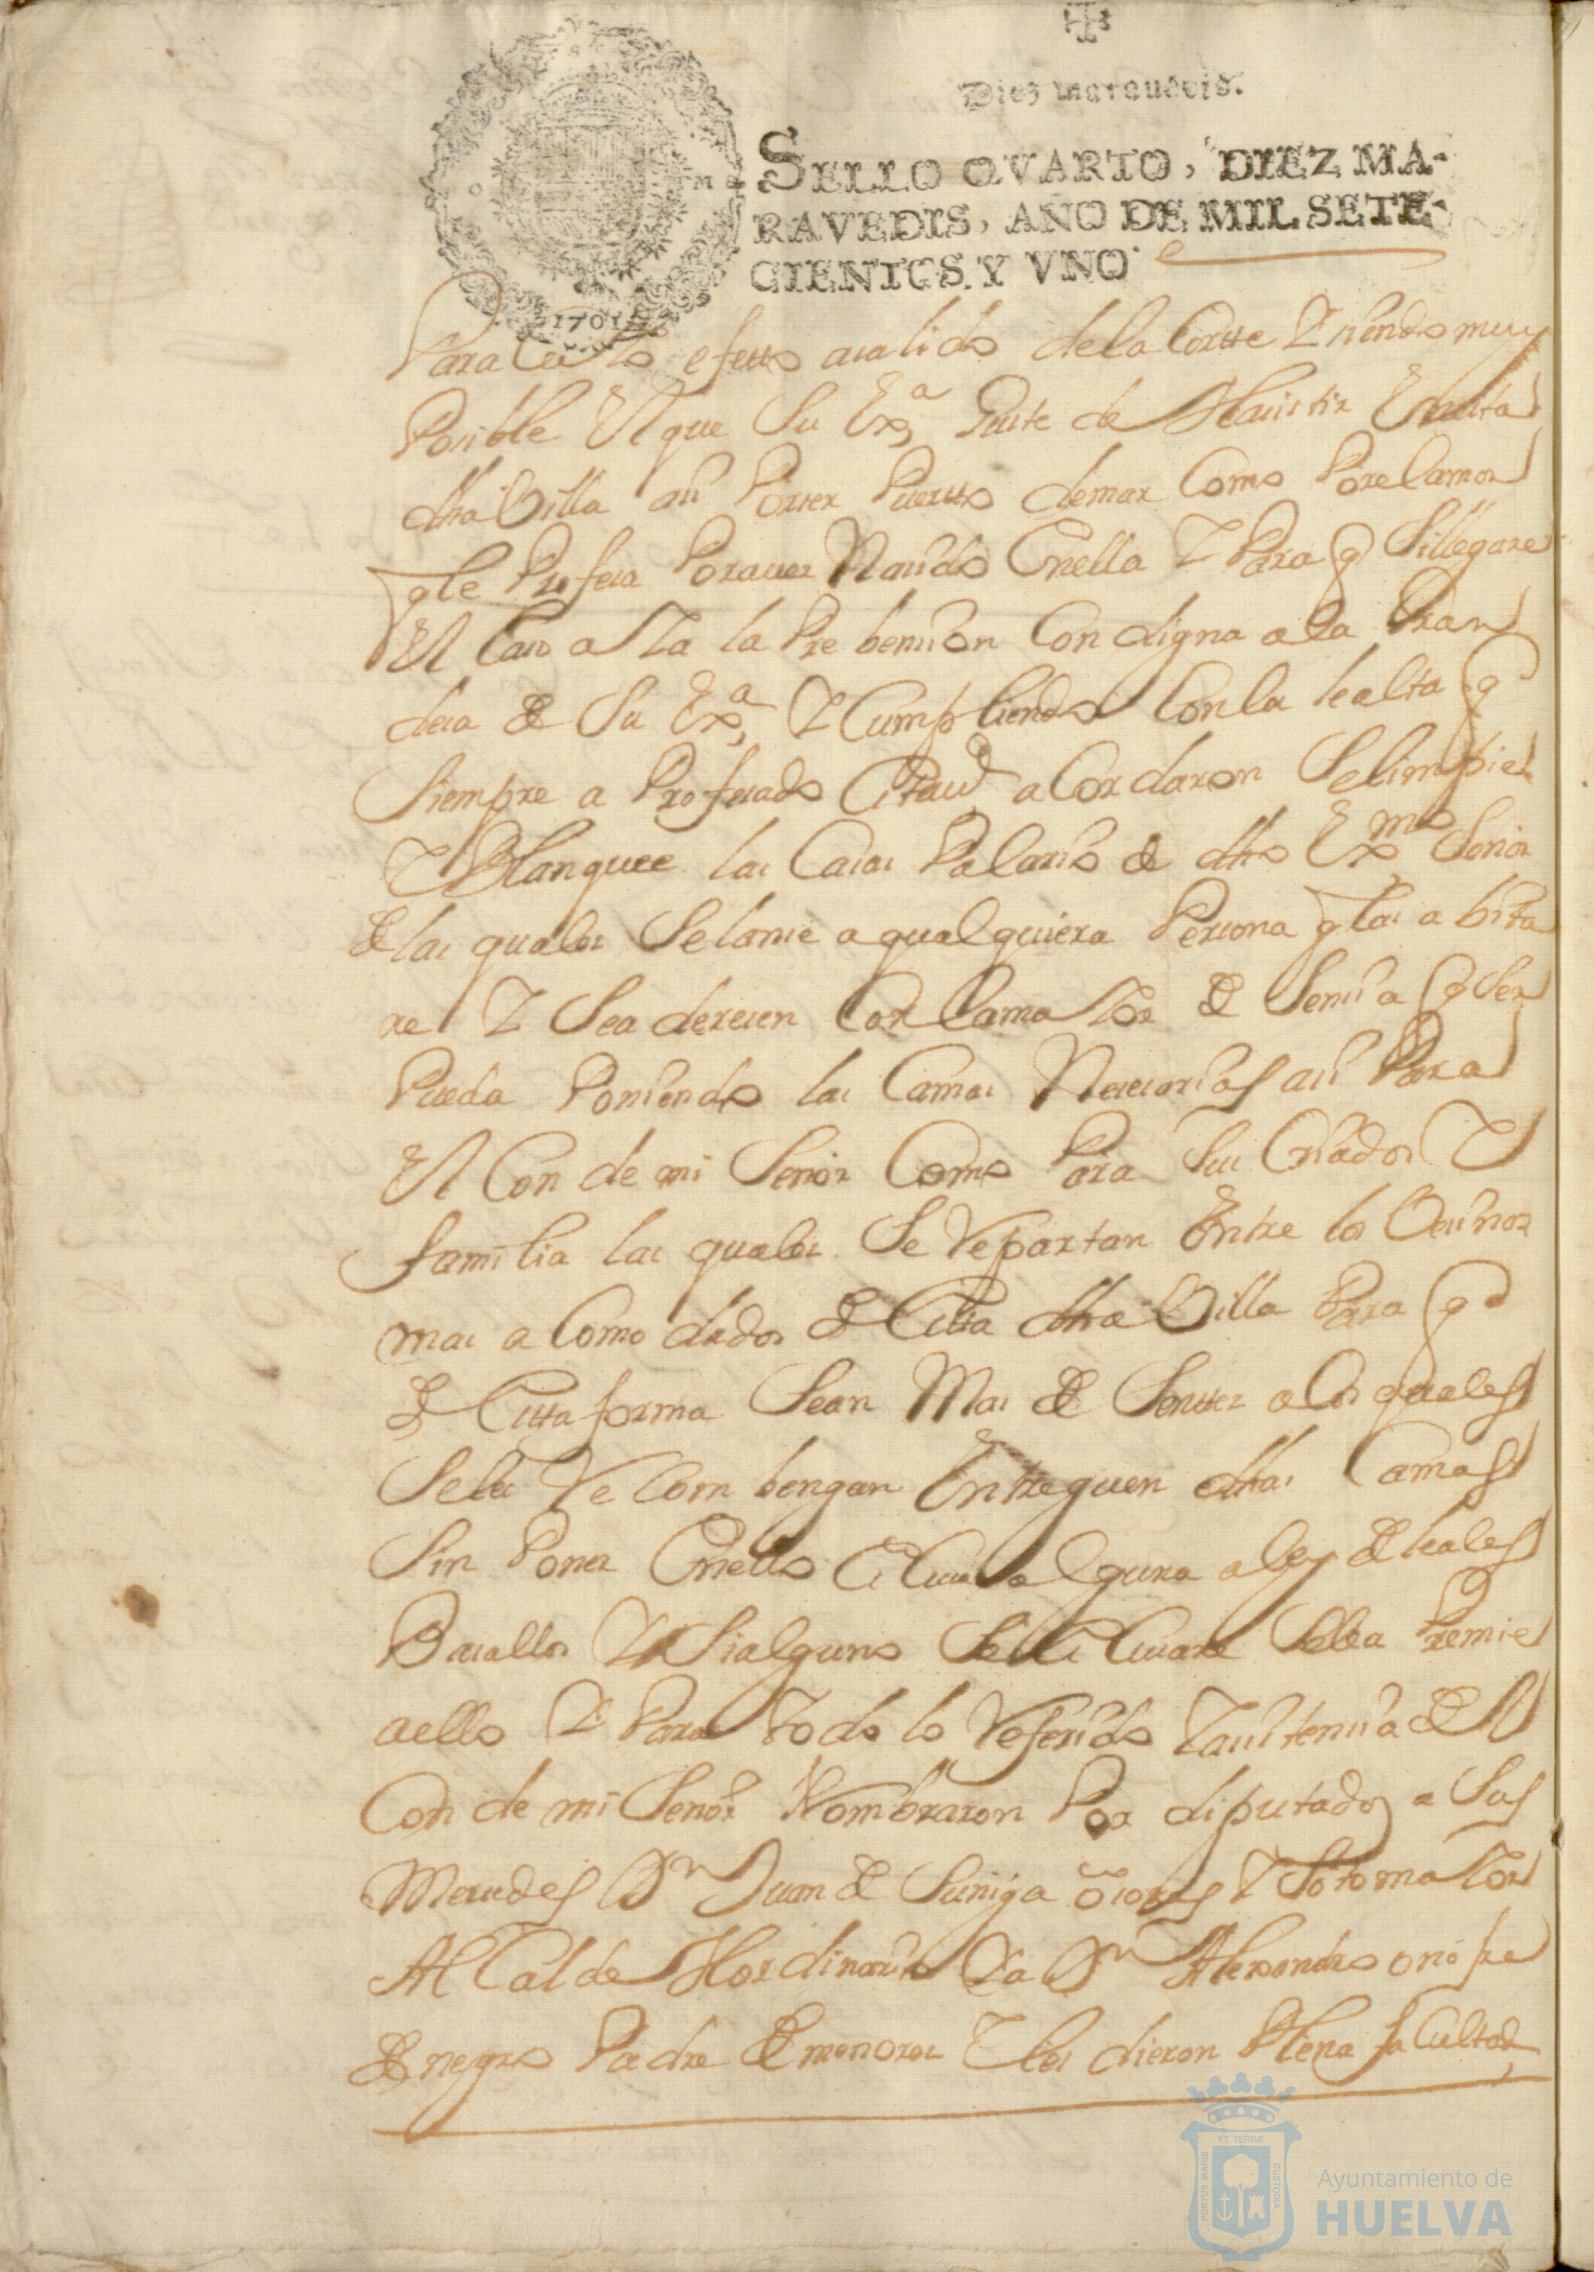 Diez maravedis.
SELLO QVARTO, DIEZ MA-
RAVEDIS, AÑO DE MIL SETE-
CIENTOS, Y VNO
1701
Para efetto a salido de la Cortte Y siendo muy
Posible El que Su Exa guste de
dha Villa asi Por ser Puertto de mar Como Por el amor
qle Profesa Por aver Nasido En ella Y Para q Si llegare
El Caso aYa la Prebension Condigna a la Gran
desa de Su Exa Y Cumpliendo Con la lealta q
Siempre a Profesado a Cordaron Se limpie
Y Blanquee las Casas Palasio de dho Exmo Señor
de las quales Se lanse a qualquiera Persona qlas abita
re Y Se aderesen Con la maYor desensia q Ser
Pueda Poniendo las Camas Nesesarias asi Para
El Conde mi Señor Como Para Sus Criados Y
familia las quales Se Repartan Entre los Vesinos
mas a Comodados de Esta dha Villa Para q
de Esta forma Sean Mas de a los quales
Se les Recombengan Entreguen dhas Camas
Sin Poner En ello EsCusa alguna a ley de leales
Basallos Y Si alguno Se EsCusare Se le a Premie
a ello Y Para todo lo Referido Y asistensia del
Conde mi Señor Nombraron Por diputados a Sus
Mersedes Dn Juan de Suñiga Y SotomaYor
AlCalde Hordinario Y a Dn Alexandro onofre
de negro Padre de menores Y les dieron Plena faCultad
PORTUS MARIS
ET TERRÆ
CUSTODIA
Ayuntamiento de
HUELVA